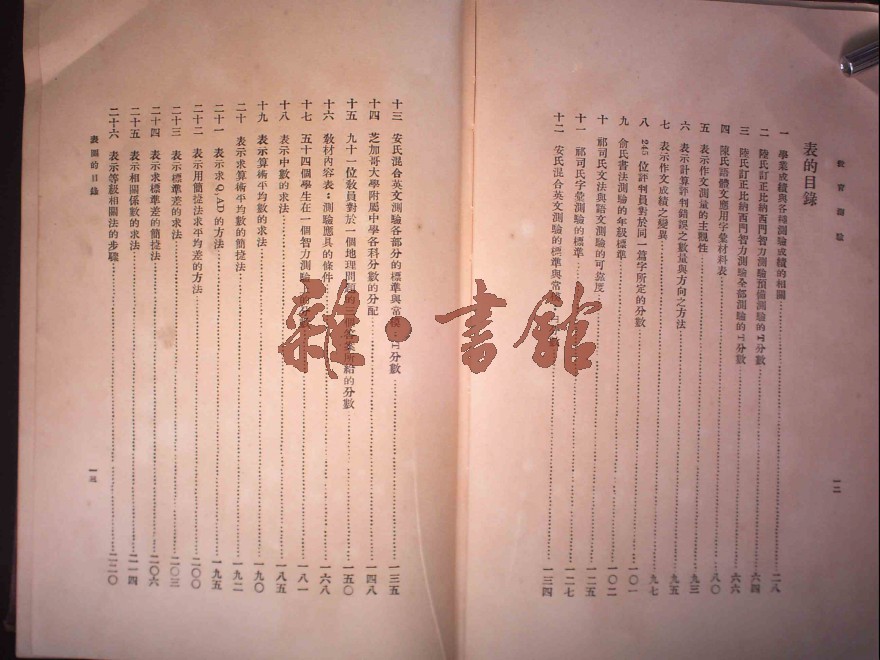 教育測驗
一二
表的目錄
一 學業成績與各種測驗成績的相關……二八
二 陸氏訂正比納西門智力測驗預備測驗的T分數……六四
三 陸氏訂正比納西門智力測驗全部測驗的T分數……六六
四 陳氏語體文應用字彙材料表……八〇
五 表示作文測量的主觀性……九三
六 表示計算評判錯誤之數量與方向之方法……九五
七 表示作文成績之變異……九七
八 245位評判員對於同一篇字所定的分數……一〇一
九 俞氏書法測驗的年級標準……一〇二
十 祁司氏文法與語文測驗的可靠度……一二五
十一 祁司氏字彙測驗的標準……一二七
十二 安氏混合英文測驗的標準與常模……一三四
十三 安氏混合英文測驗各部分的標準與常模:T分數……一三五
十四 芝加哥大學附屬中學各科分數的分配……一四八
十五 九十一位敎員對於一個地理問題的三個答案所給的分數……一五〇
十六 敎材內容表:測驗應具的條件……一六八
十七 五十四個學生在一個智力測驗上的分數……一八一
十八 表示中數的求法……一八五
十九 表示算術平均數的求法……一九〇
二十 表示求算術平均數的簡捷法……一九二
二十一 表示求Q,AD的方法……一九五
二十二 表示用簡捷法求平均差的方法……二〇〇
二十三 表示標準差的求法……二〇三
二十四 表示求標準差的簡捷法……二〇六
二十五 表示相關係數的求法……二一四
二十六 表示等級相關法的步驟……二二〇
表圖的目錄
雜·書館